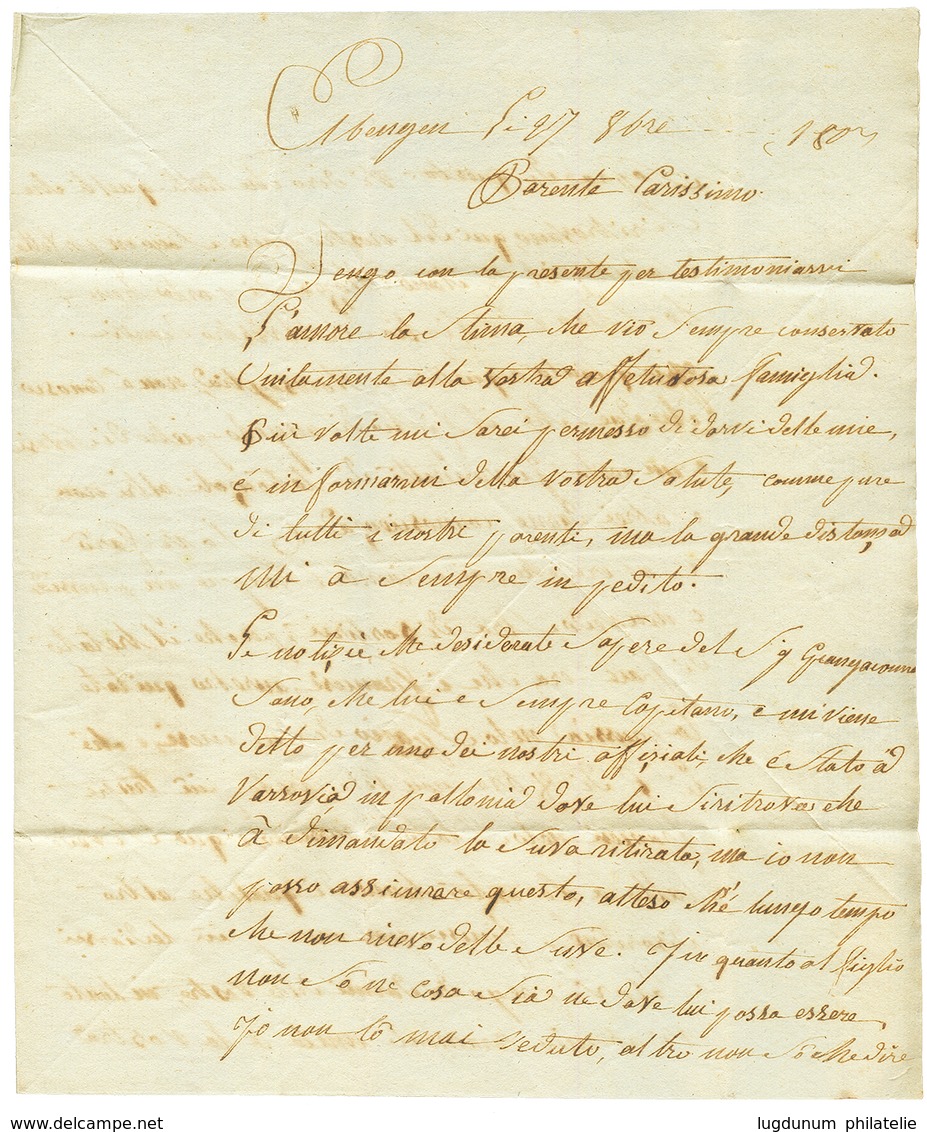 Li 27 8bre 180
Parente Carissimo.
Vengo con la presente per testimoniarvi
L'amore la stima, che viò sempre conservato
Unitamente alla vostra affetudosa famiglia.
Più volte mi sarei permesso di darvi delle mie,
é informarmi della vostra salute, comme pure
di tutti i nostri parenti, ma la grande distanza
mi à sempre in pedito.
Le notizie che desiderate sapere del Sg
Sano, che lui e sempre Capitano, e mi viene
detto per uno dei nostri affiziali, che e stato à
Varsovia in pallonia dove lui si ritrova che
à dimandato la suva ritirata, ma io non
posso assicurare questo, atteso ché lungo tempo
che non ricevo delle suve. In quanto al figlio
non sò ne cosa sia ne dove lui possa essere,
Jo non lò mai veduto, altro non sò che dire
delcampe.net
lugdunum philatelie